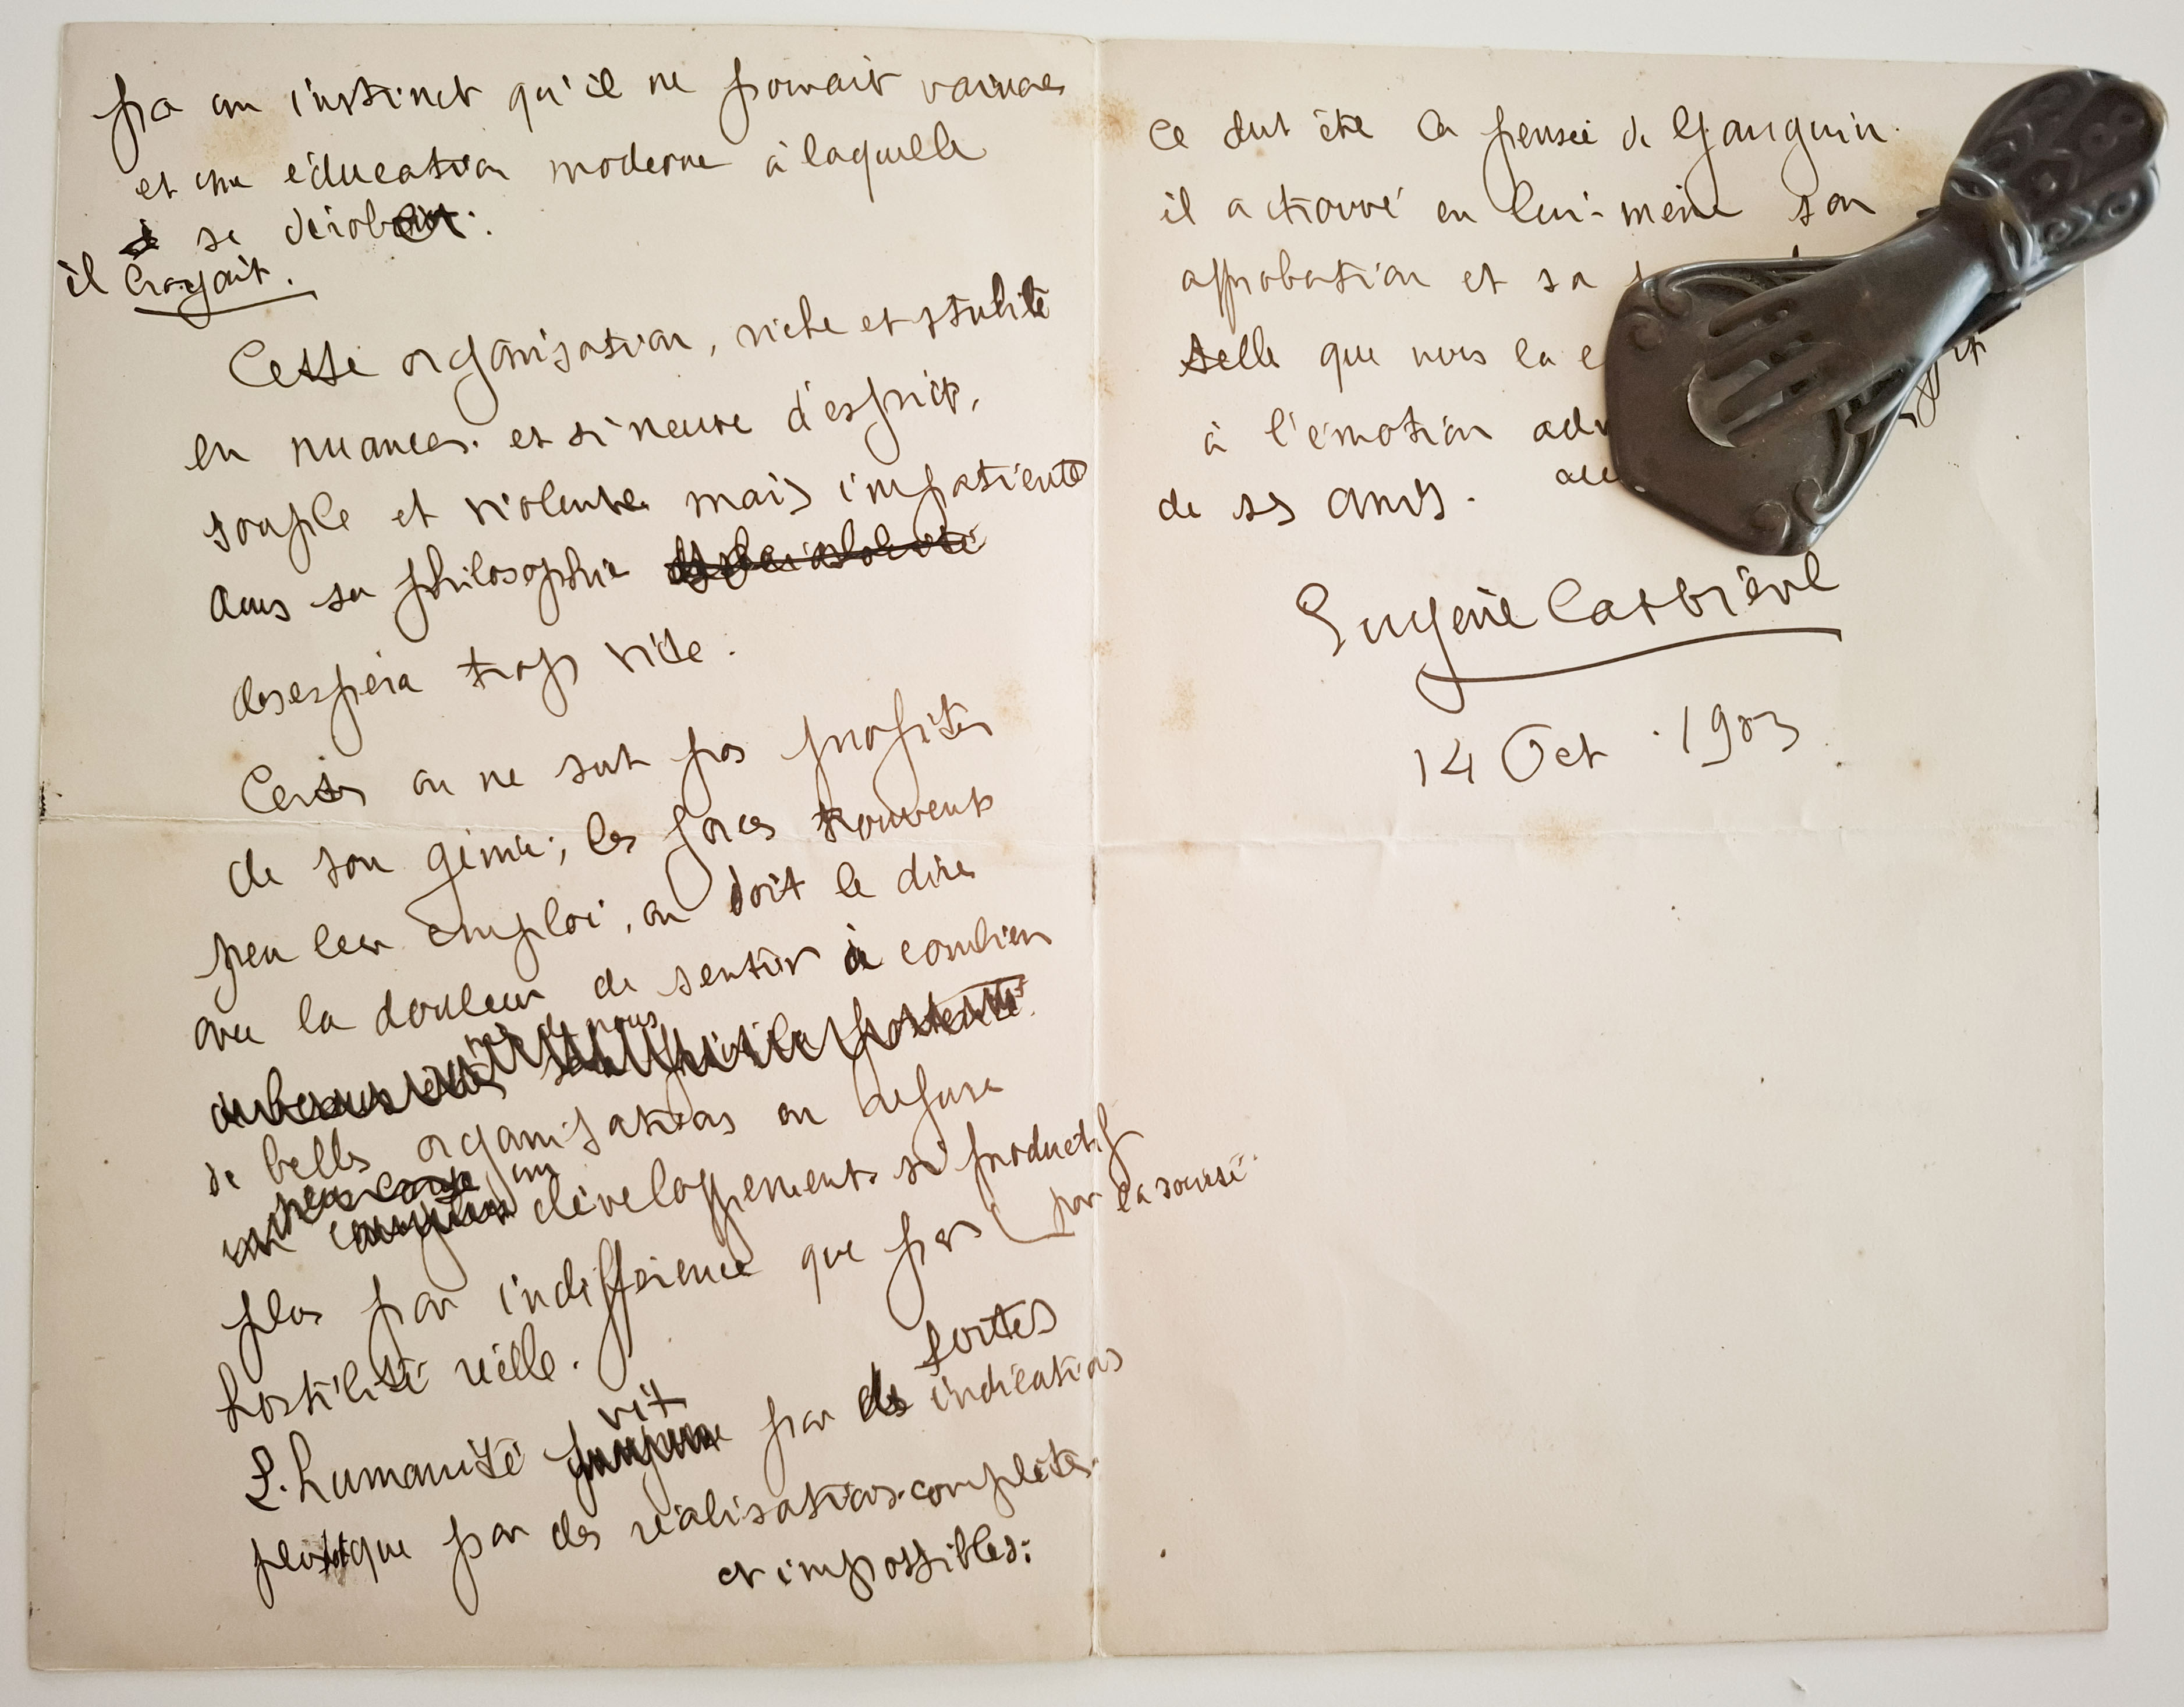 par un instinct qu'il ne pouvait vaincre
et une éducation moderne à laquelle
il croyait se dérober.
Cette organisation, riche et subtile
en nuances. et si neuve d'esprit,
souple et violente mais impatiente
dans sa philosophie
desespéra trop vite.
Certes on ne sut pas profiter
de son génie; les forces trouvent
peu leur emploi, on doit le dire
avec la douleur de sentir à combien
de belles organisations on refuse
un développement si productif
plus par indifférence que par
par la sourse
hostilité réelle.
L'humanité vit par de fortes indications
plus que par des réalisations complètes
et impossibles:
Ce dut être la pensée de Gauguin.
il a trouvé en lui-même son
approbation et sa
telle que nous la
à l'émotion
de ses amis.
Eugène Carrière
14 Oct. 1903